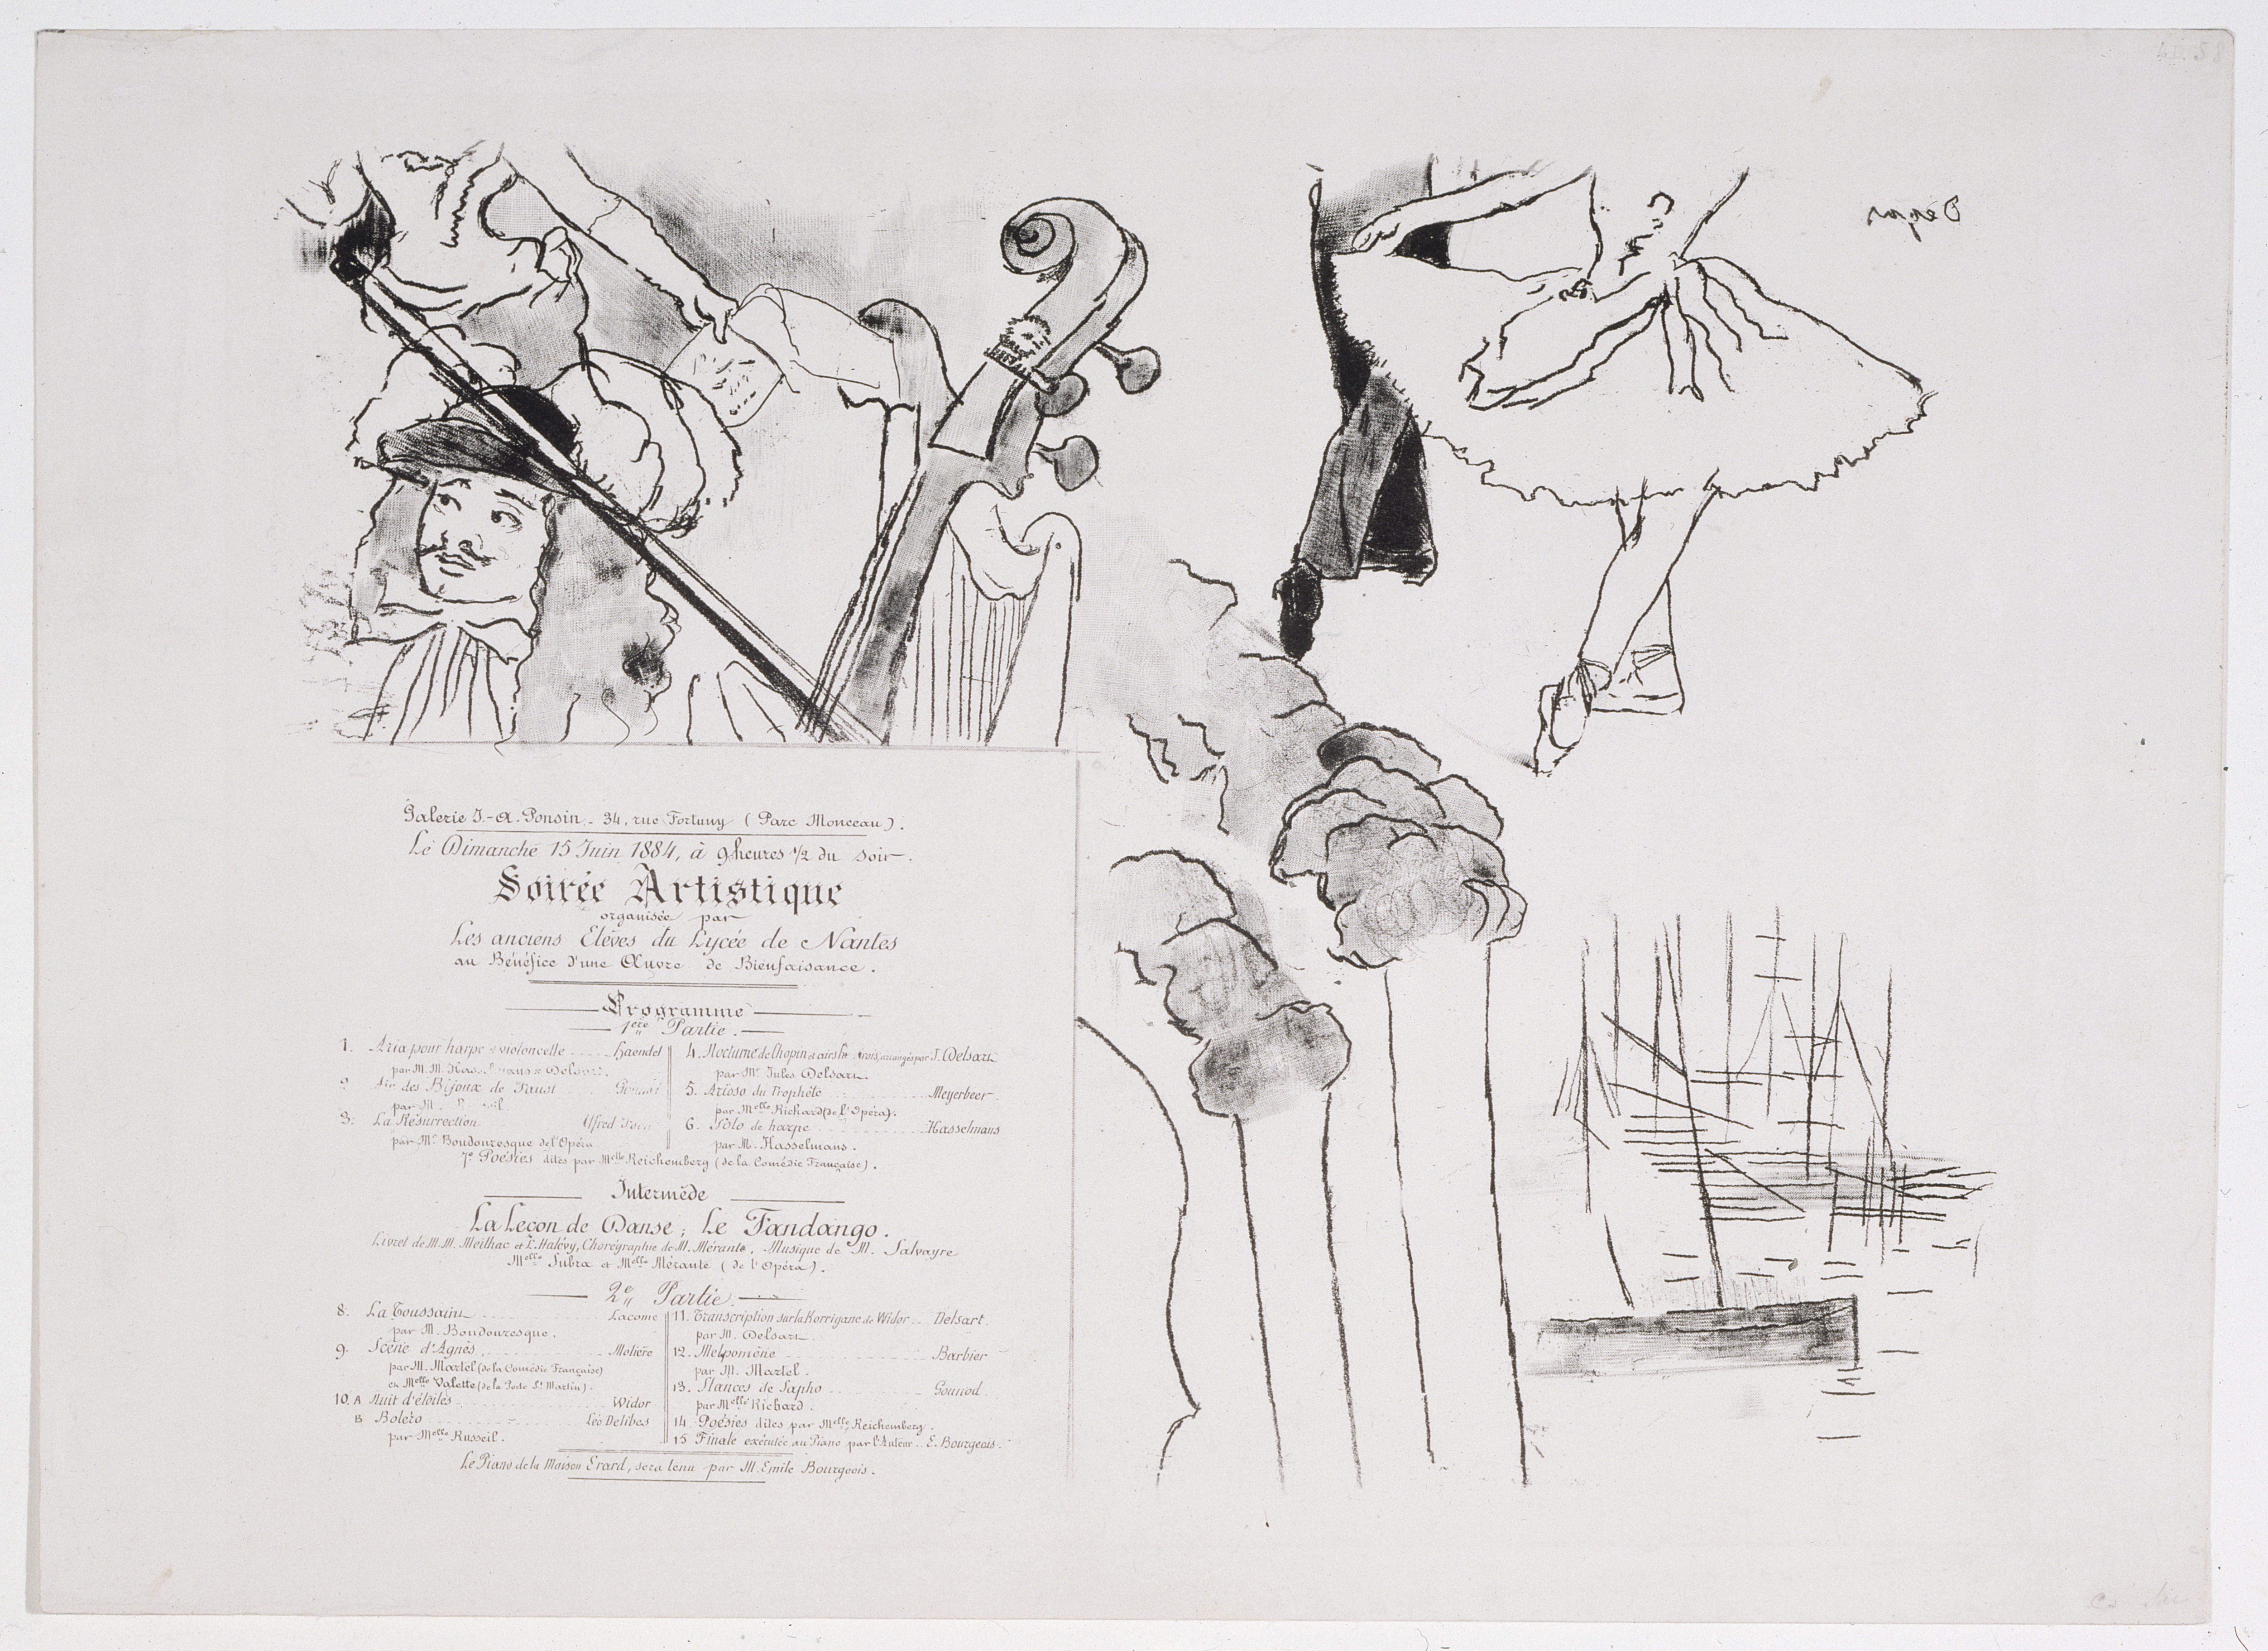 Degas
Galerie J.-A. Ponsin - 34, rue Fortuny (Parc Monceau).
Le Dimanche 15 Juin 1884, à 9 heures 1/2 du soir.
Soirée Artistique
organisée par
Les anciens Elèves du Lycée de Nantes
au Bénéfice d'une Œuvre de Bienfaisance.
Programme
1ère Partie.
1. Aria pour harpe et violoncelle ..... Haendel
par M.M.
2. Air des Bijoux de Faust
par
3. La Résurrection
par Mr Boudouresque de l'Opéra
4. Nocturne de Chopin et airs arrangés par J. Delsart
par Mr Jules Delsart.
5. Arioso du Prophète ..... Meyerbeer.
par Melle Richard (de l'Opéra).
6. Solo de harpe ..... Hasselmans
par M. Hasselmans.
7e Poésies dites par Melle Reichemberg (de la Comédie Française).
Intermède
La Leçon de Danse; Le Fandango.
Livret de M.M. Meilhac et L. Halévy, Chorégraphie de M. Mérante, Musique de M. Salvayre
Melle Subra et Melle Mérante (de l'Opéra).
2e Partie.
8. La Toussaint ..... Lacome
par M. Boudouresque.
9. Scène d'Agnès ..... Molière
par M. Martel (de la Comédie Française)
et Melle Valette (de la Porte St Martin).
10. A Nuit d'étoiles ..... Widor
B Boléro ..... Léo Delibes
par Melle Russeil.
11. Transcription sur la Korrigane de Widor .. Delsart.
par M. Delsart.
12. Melpomène ..... Barbier
par M. Martel.
13. Stances de Sapho ..... Gounod.
par Melle Richard.
14. Poésies dites par Melle Reichemberg.
15 Finale exécutée au Piano par l'Auteur .. E. Bourgeois.
Le Piano de la Maison Erard, sera tenu par M. Emile Bourgeois.